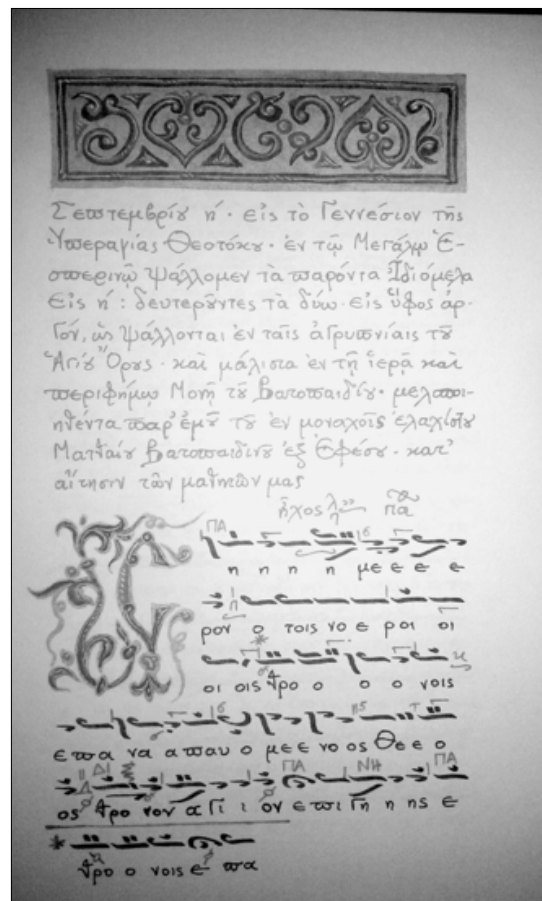 Σεπτεμβρίου η΄. εἰς τὸ Γεννέσιον τῆς
Ὑπεραγίας Θεοτόκου. ἐν τῷ Μεγάλῳ Ἑ-
σπερινῷ ψάλλομεν τὰ παρόντα Ἰδιόμελα
Εἰς η΄: δευτεροῦντες τὰ δύω. εἰς ὕφος ἀρ-
γόν, ὡς ψάλλονται ἐν ταῖς ἀγρυπνίαις τοῦ
Ἁγίου Ὄρους. καὶ μάλιστα ἐν τῇ ἱερᾷ καὶ
περιφήμῳ Μονῇ τοῦ Βατοπαιδίου. μελοποι-
ηθέντα παρ' ἐμοῦ τοῦ ἐν μοναχοῖς ἐλαχίστου
Ματθαίου Βατοπαιδινοῦ ἐξ Ἐφέσου. κατ'
αἴτησιν τῶν μαθητῶν μας
ἦχος πα
ΠΑ
Σ η η η η με ε ε ε
ρον ο τοις νο ε ροι οι
οι οις θρο ο ο ο νοις
ε πα να παυ ο με ε νο ος Θε ε ο
ΔΙ ΓΑ ΝΗ ΠΑ
ος θρο νον α γι ι ον ε πι γη η ης ε
* θρο ο νοις ε πα